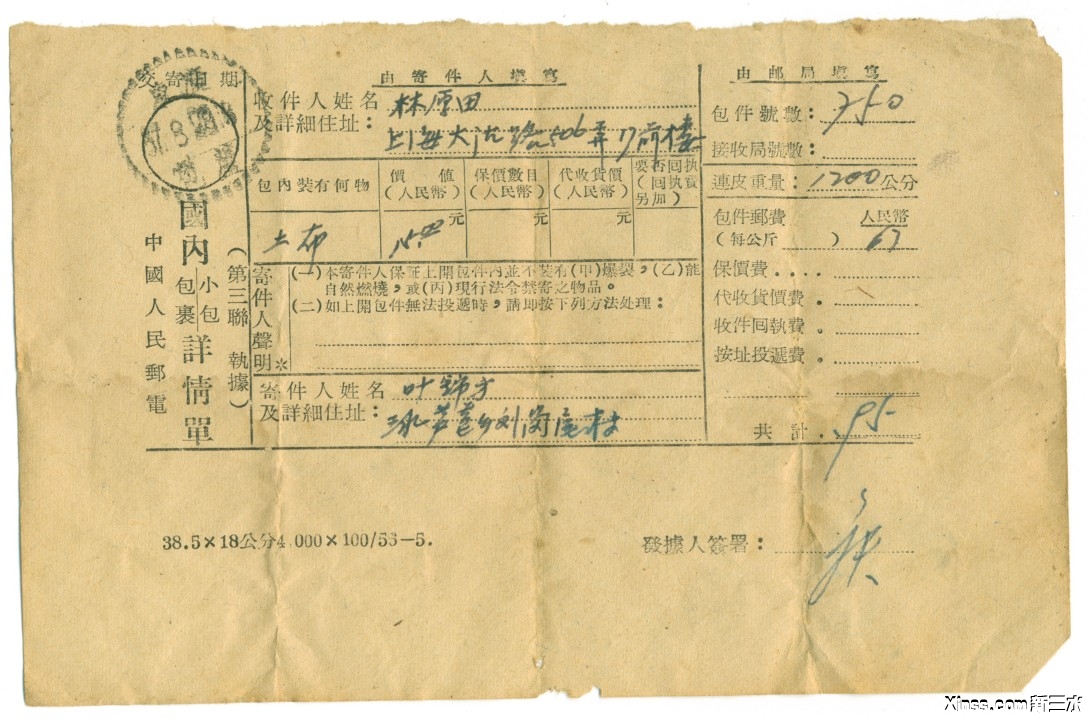 交寄日期
57.8.29
國內
小包
包裹
詳情單
（第三聯 執據）
中國人民郵電
由寄件人填寫
收件人姓名
及詳細住址： 林厚田
上海大沽路506弄17前樓
包內裝有何物 價值（人民幣） 保價數目（人民幣） 代收貨價（人民幣） 要否囘執（囘執費另加）
元 元 元
土布
寄件人聲明＊
(一)本寄件人保証上開包件內並不裝有(甲)爆裂，(乙)能
自然燃燒，或(丙)現行法令禁寄之物品。
(二)如上開包件無法投遞時，請即按下列方法处理：
寄件人姓名
及詳細住址： 叶錦方
由郵局填寫
包件號數： 750
接收局號數：
連皮重量： 1200公分
包件郵費 人民幣
（每公斤 ） 67
保價費．
代收貨價費．
收件囘執費。
按址投遞費。
共計． 95
38.5×18公分4,000×100/56-5.
發據人簽署：
Xinss.com新三水